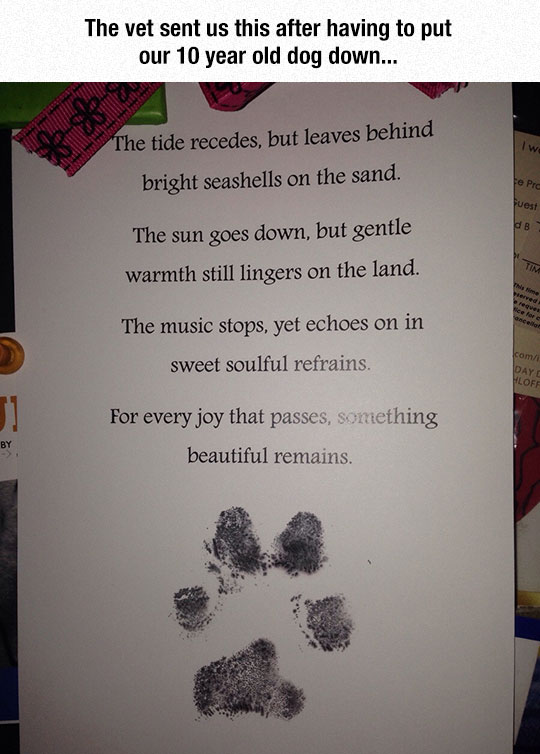 The vet sent us this after having to put
our 10 year old dog down...
The tide recedes, but leaves behind
bright seashells on the sand.
The sun goes down, but gentle
warmth still lingers on the land.
The music stops, yet echoes on in
sweet soulful refrains.
For every joy that passes, something
beautiful remains.
BY
TIM
This time
DAY